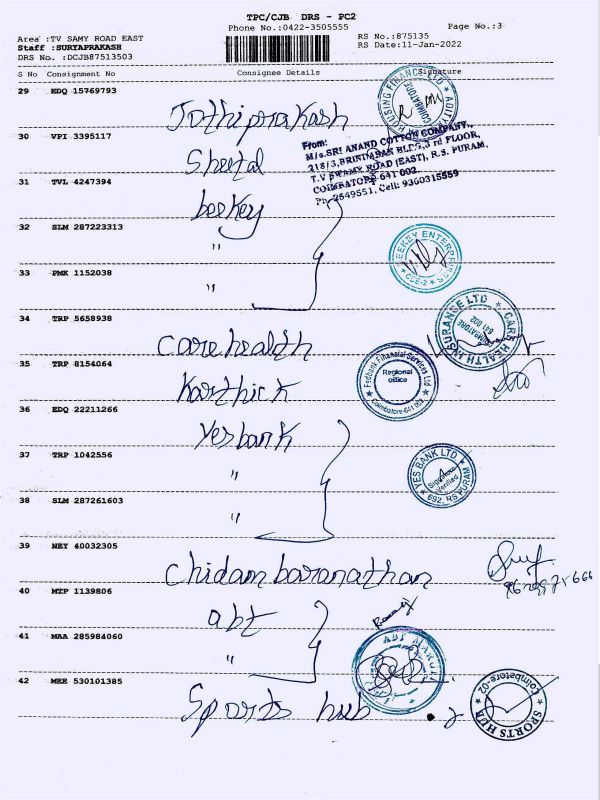 TPC/CJB DRS - PC2
Phone No.:0422-3505555
Page No.:3
Area :TV SAMY ROAD EAST
RS No.:875135
Staff :SURYAPRAKASH
RS Date:11-Jan-2022
DRS No. :DCJB87513503
S No Consignment No Consignee Details Signature
29 EDQ 15769793
Jothiprakash
HOUSING FINANCE LTD
COIMBATORE
30 VPI 3395117
Sheetal
From:
M/s.SRI ANAND COTTON COMPANY,
218/3,BRINDABAN BLDG,3 rd FLOOR,
T.V SWAMY ROAD (EAST), R.S. PURAM,
COIMBATORE-641 002.
Ph:2549551, Cell: 9360315559
31 TVL 4247394
beekey
32 SLM 287223313
"
BEEKEY ENTERPRISES
CBE-2
33 PMK 1152038
"
34 TRP 5658938
Care health
CARE HEALTH INSURANCE LTD
COIMBATORE
641 002
35 TRP 8154064
Karthick
Fedbank Financial Services Ltd
Regional
office
Coimbatore-641 002
36 EDQ 22211266
Yesbank
37 TRP 1042556
"
YES BANK LTD.
Signature
Verified
692, RS PURAM
38 SLM 287261603
"
39 NEY 40032305
Chidambaranathan
40 MTP 1139806
abt
41 MAA 285984060
"
ABT MARUTI
42 MEE 530101385
Sports hub
2
SPORTS HUB
Coimbatore-02